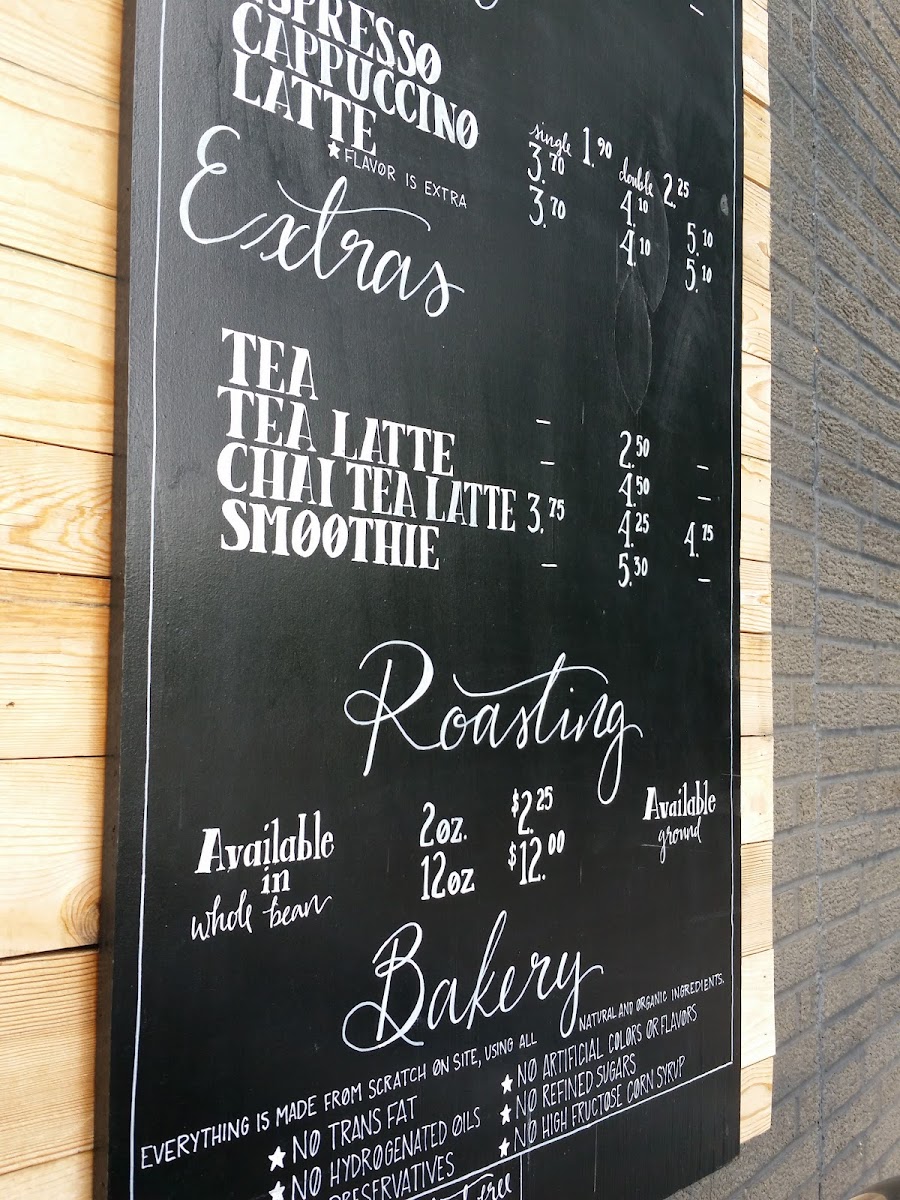 ESPRESSO single 1.90 double 2.25 –
CAPPUCCINO 3.70 4.10 5.10
LATTE 3.70 4.10 5.10
★ FLAVOR IS EXTRA
Extras
TEA – 2.50 –
TEA LATTE – 4.50 –
CHAI TEA LATTE 3.75 4.25 4.75
SMOOTHIE – 5.30 –
Roasting
Available
in
whole bean
2oz. $2.25
12oz $12.00
Available
ground
Bakery
EVERYTHING IS MADE FROM SCRATCH ON SITE, USING ALL NATURAL AND ORGANIC INGREDIENTS.
★ NO TRANS FAT
★ NO HYDROGENATED OILS
PRESERVATIVES
★ NO ARTIFICIAL COLORS OR FLAVORS
★ NO REFINED SUGARS
★ NO HIGH FRUCTOSE CORN SYRUP